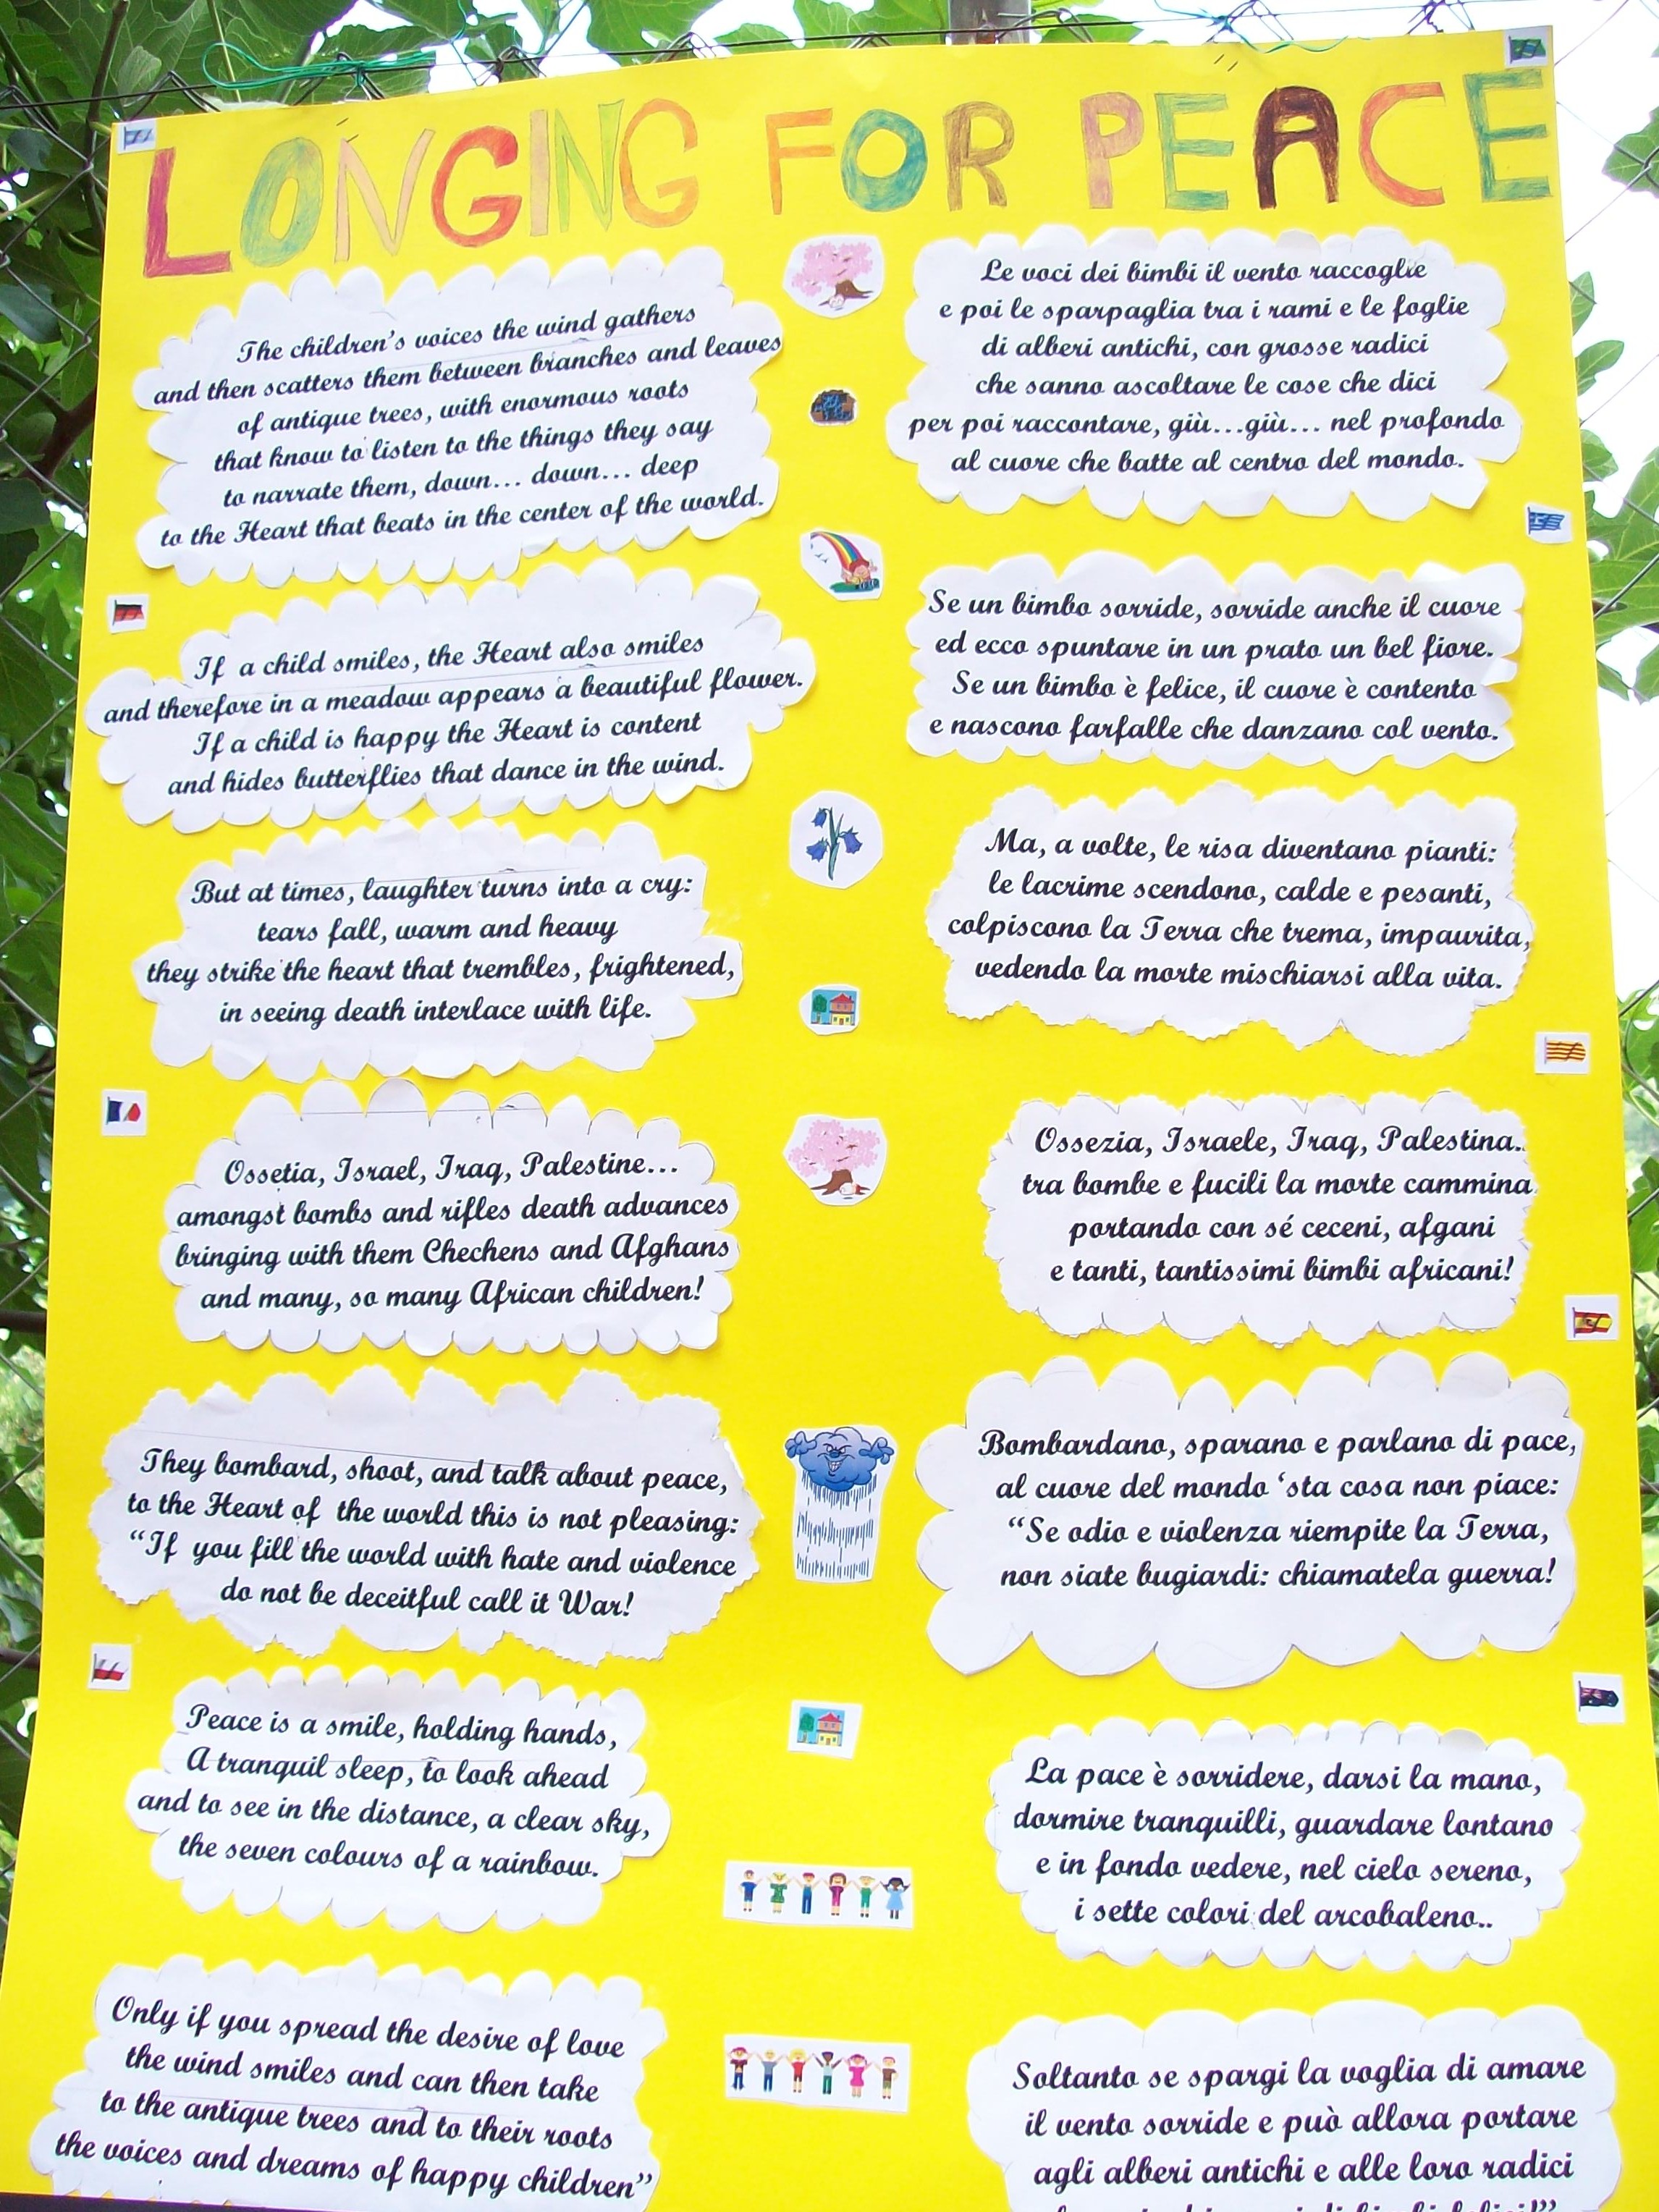 LONGING FOR PEACE
The children's voices the wind gathers
and then scatters them between branches and leaves
of antique trees, with enormous roots
that know to listen to the things they say
to narrate them, down... down... deep
to the Heart that beats in the center of the world.
If a child smiles, the Heart also smiles
and therefore in a meadow appears a beautiful flower.
If a child is happy the Heart is content
and hides butterflies that dance in the wind.
But at times, laughter turns into a cry:
tears fall, warm and heavy
they strike the heart that trembles, frightened,
in seeing death interlace with life.
Ossetia, Israel, Iraq, Palestine...
amongst bombs and rifles death advances
bringing with them Chechens and Afghans
and many, so many African children!
They bombard, shoot, and talk about peace,
to the Heart of the world this is not pleasing:
"If you fill the world with hate and violence
do not be deceitful call it War!
Peace is a smile, holding hands,
A tranquil sleep, to look ahead
and to see in the distance, a clear sky,
the seven colours of a rainbow.
Only if you spread the desire of love
the wind smiles and can then take
to the antique trees and to their roots
the voices and dreams of happy children"
Le voci dei bimbi il vento raccoglie
e poi le sparpaglia tra i rami e le foglie
di alberi antichi, con grosse radici
che sanno ascoltare le cose che dici
per poi raccontare, giù...giù... nel profondo
al cuore che batte al centro del mondo.
Se un bimbo sorride, sorride anche il cuore
ed ecco spuntare in un prato un bel fiore.
Se un bimbo è felice, il cuore è contento
e nascono farfalle che danzano col vento.
Ma, a volte, le risa diventano pianti:
le lacrime scendono, calde e pesanti,
colpiscono la Terra che trema, impaurita,
vedendo la morte mischiarsi alla vita.
Ossezia, Israele, Iraq, Palestina..
tra bombe e fucili la morte cammina
portando con sé ceceni, afgani
e tanti, tantissimi bimbi africani!
Bombardano, sparano e parlano di pace,
al cuore del mondo 'sta cosa non piace:
"Se odio e violenza riempite la Terra,
non siate bugiardi: chiamatela guerra!
La pace è sorridere, darsi la mano,
dormire tranquilli, guardare lontano
e in fondo vedere, nel cielo sereno,
i sette colori del arcobaleno..
Soltanto se spargi la voglia di amare
il vento sorride e può allora portare
agli alberi antichi e alle loro radici